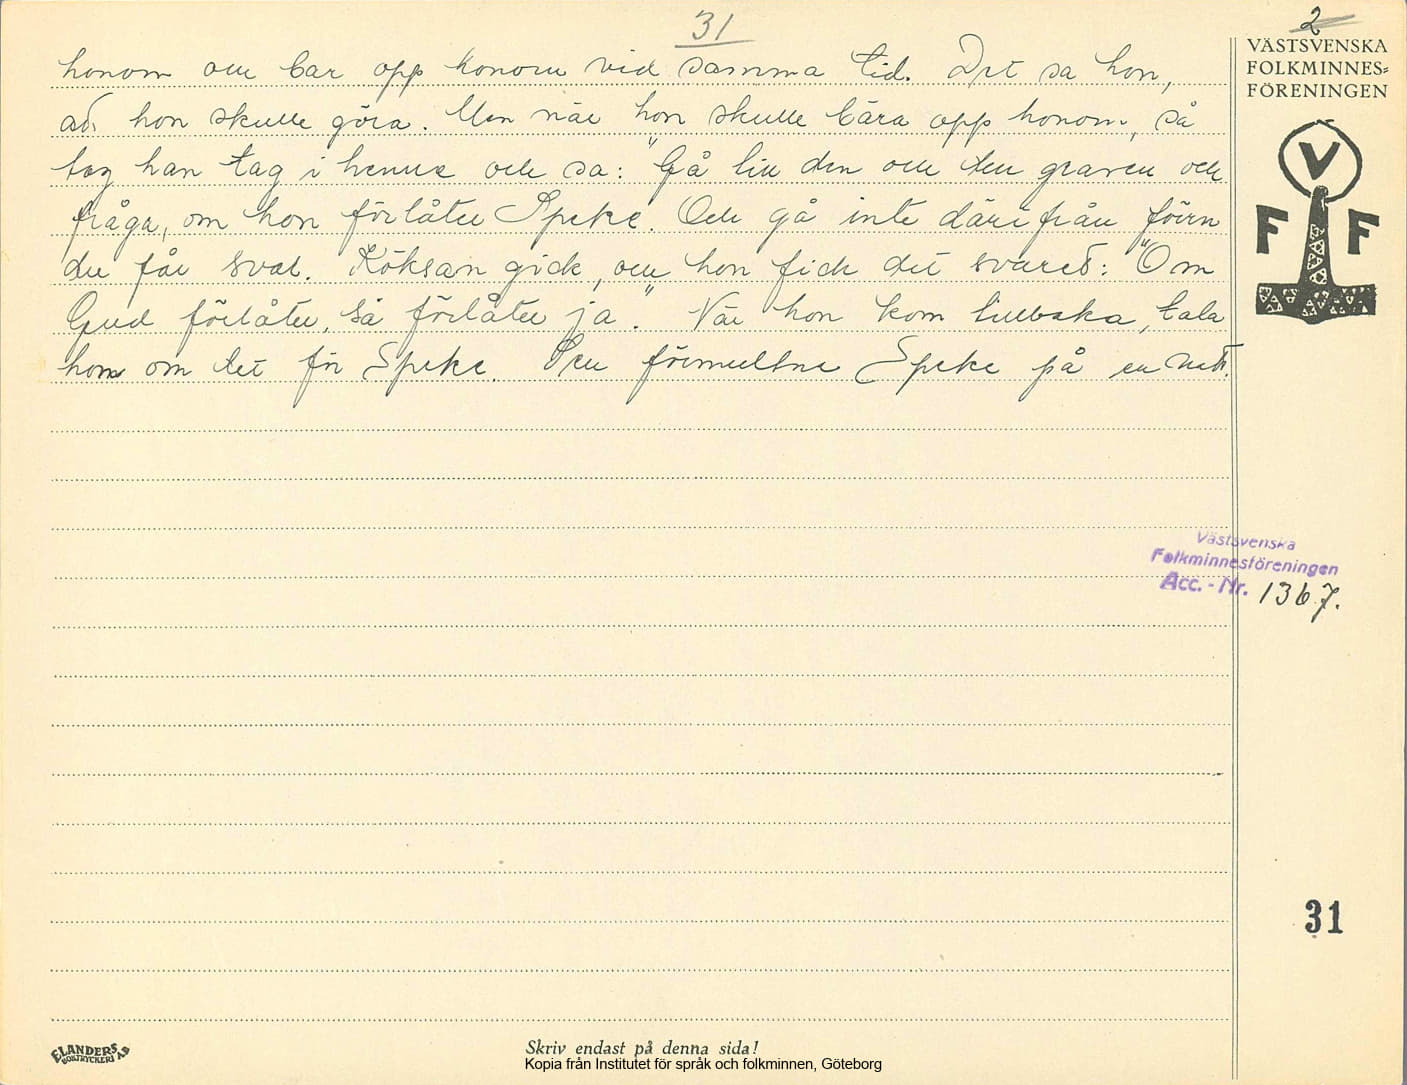 31
2
VÄSTSVENSKA
FOLKMINNES=
FÖRENINGEN
V
F F
honom och bar opp honom vid samma tid. Det sa hon,
ad hon skulle göra. Men när hon skulle bära opp honom, så
tog han tag i henne och sa: "Gå till den och den graven och
fråga, om hon förlåter Speke. Och gå inte därifrån förrn
du får svar. Köksan gick, och hon fick det svared: "Om
Gud förlåter, så förlåter ja". När hon kom tillbaka, tala
hon om det för Speke. Sen förmultne Speke på en natt.
Västsvenska
Folkminnesföreningen
Acc. - Nr. 1367.
31
ELANDERS
BOKTRYCKERI AB
Skriv endast på denna sida!
Kopia från Institutet för språk och folkminnen, Göteborg